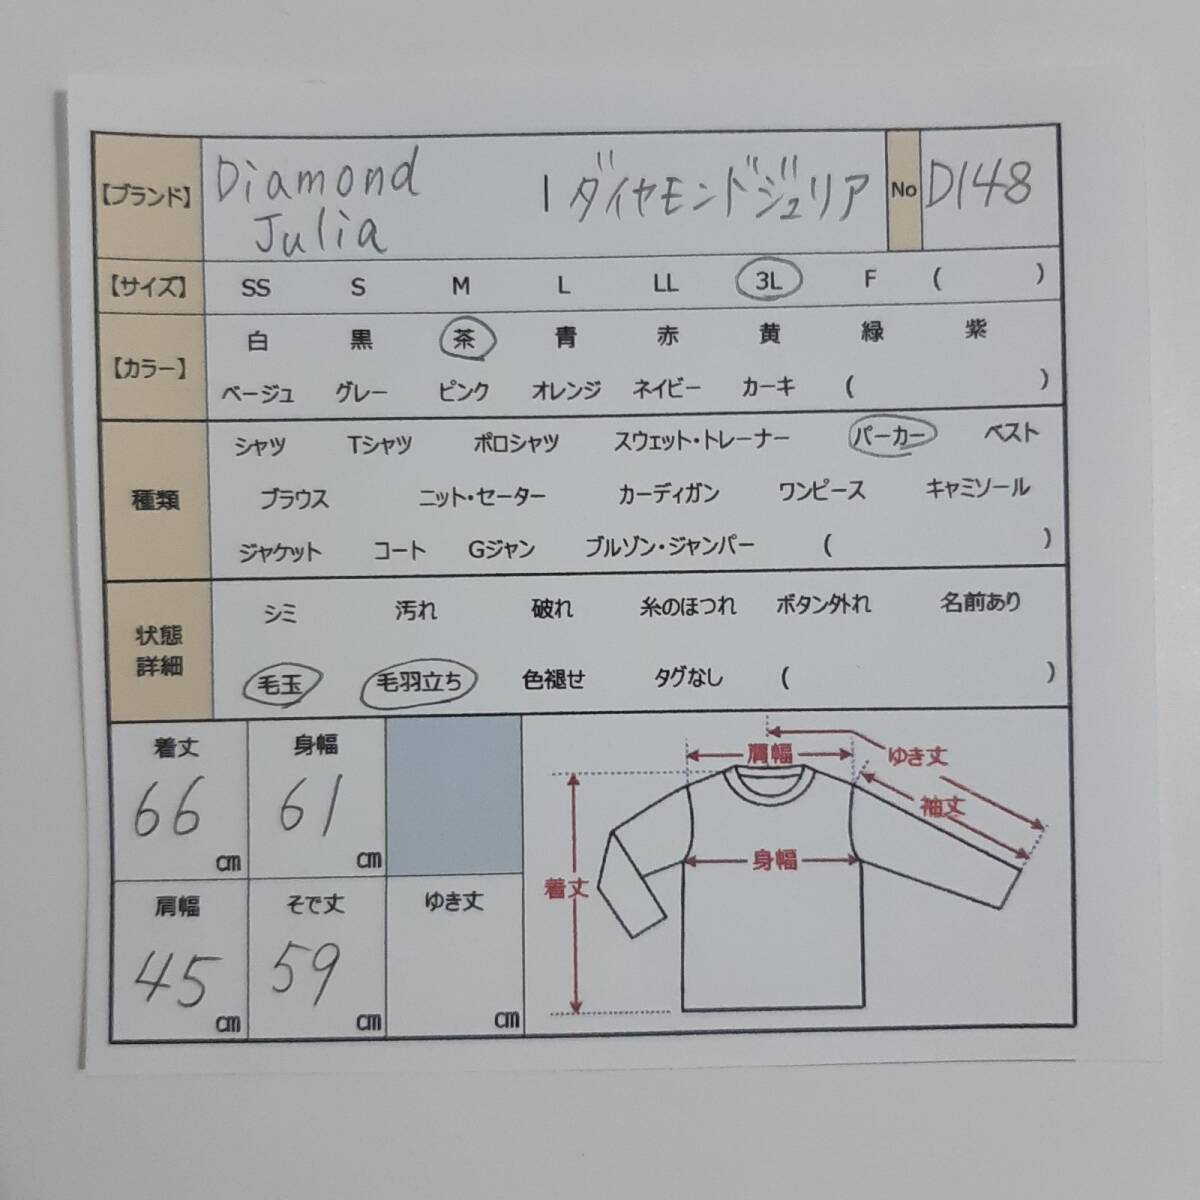 【ブランド】 Diamond Julia | ダイヤモンドジュリア No D148
【サイズ】 SS S M L LL 3L F ( )
【カラー】 白 黒 茶 青 赤 黄 緑 紫
ベージュ グレー ピンク オレンジ ネイビー カーキ ( )
種類 シャツ Tシャツ ポロシャツ スウェット・トレーナー パーカー ベスト
ブラウス ニット・セーター カーディガン ワンピース キャミソール
ジャケット コート Gジャン ブルゾン・ジャンパー ( )
状態詳細 シミ 汚れ 破れ 糸のほつれ ボタン外れ 名前あり
毛玉 毛羽立ち 色褪せ タグなし ( )
着丈 身幅
66 cm 61 cm
肩幅 そで丈 ゆき丈
45 cm 59 cm cm
肩幅 ゆき丈
袖丈
身幅
着丈